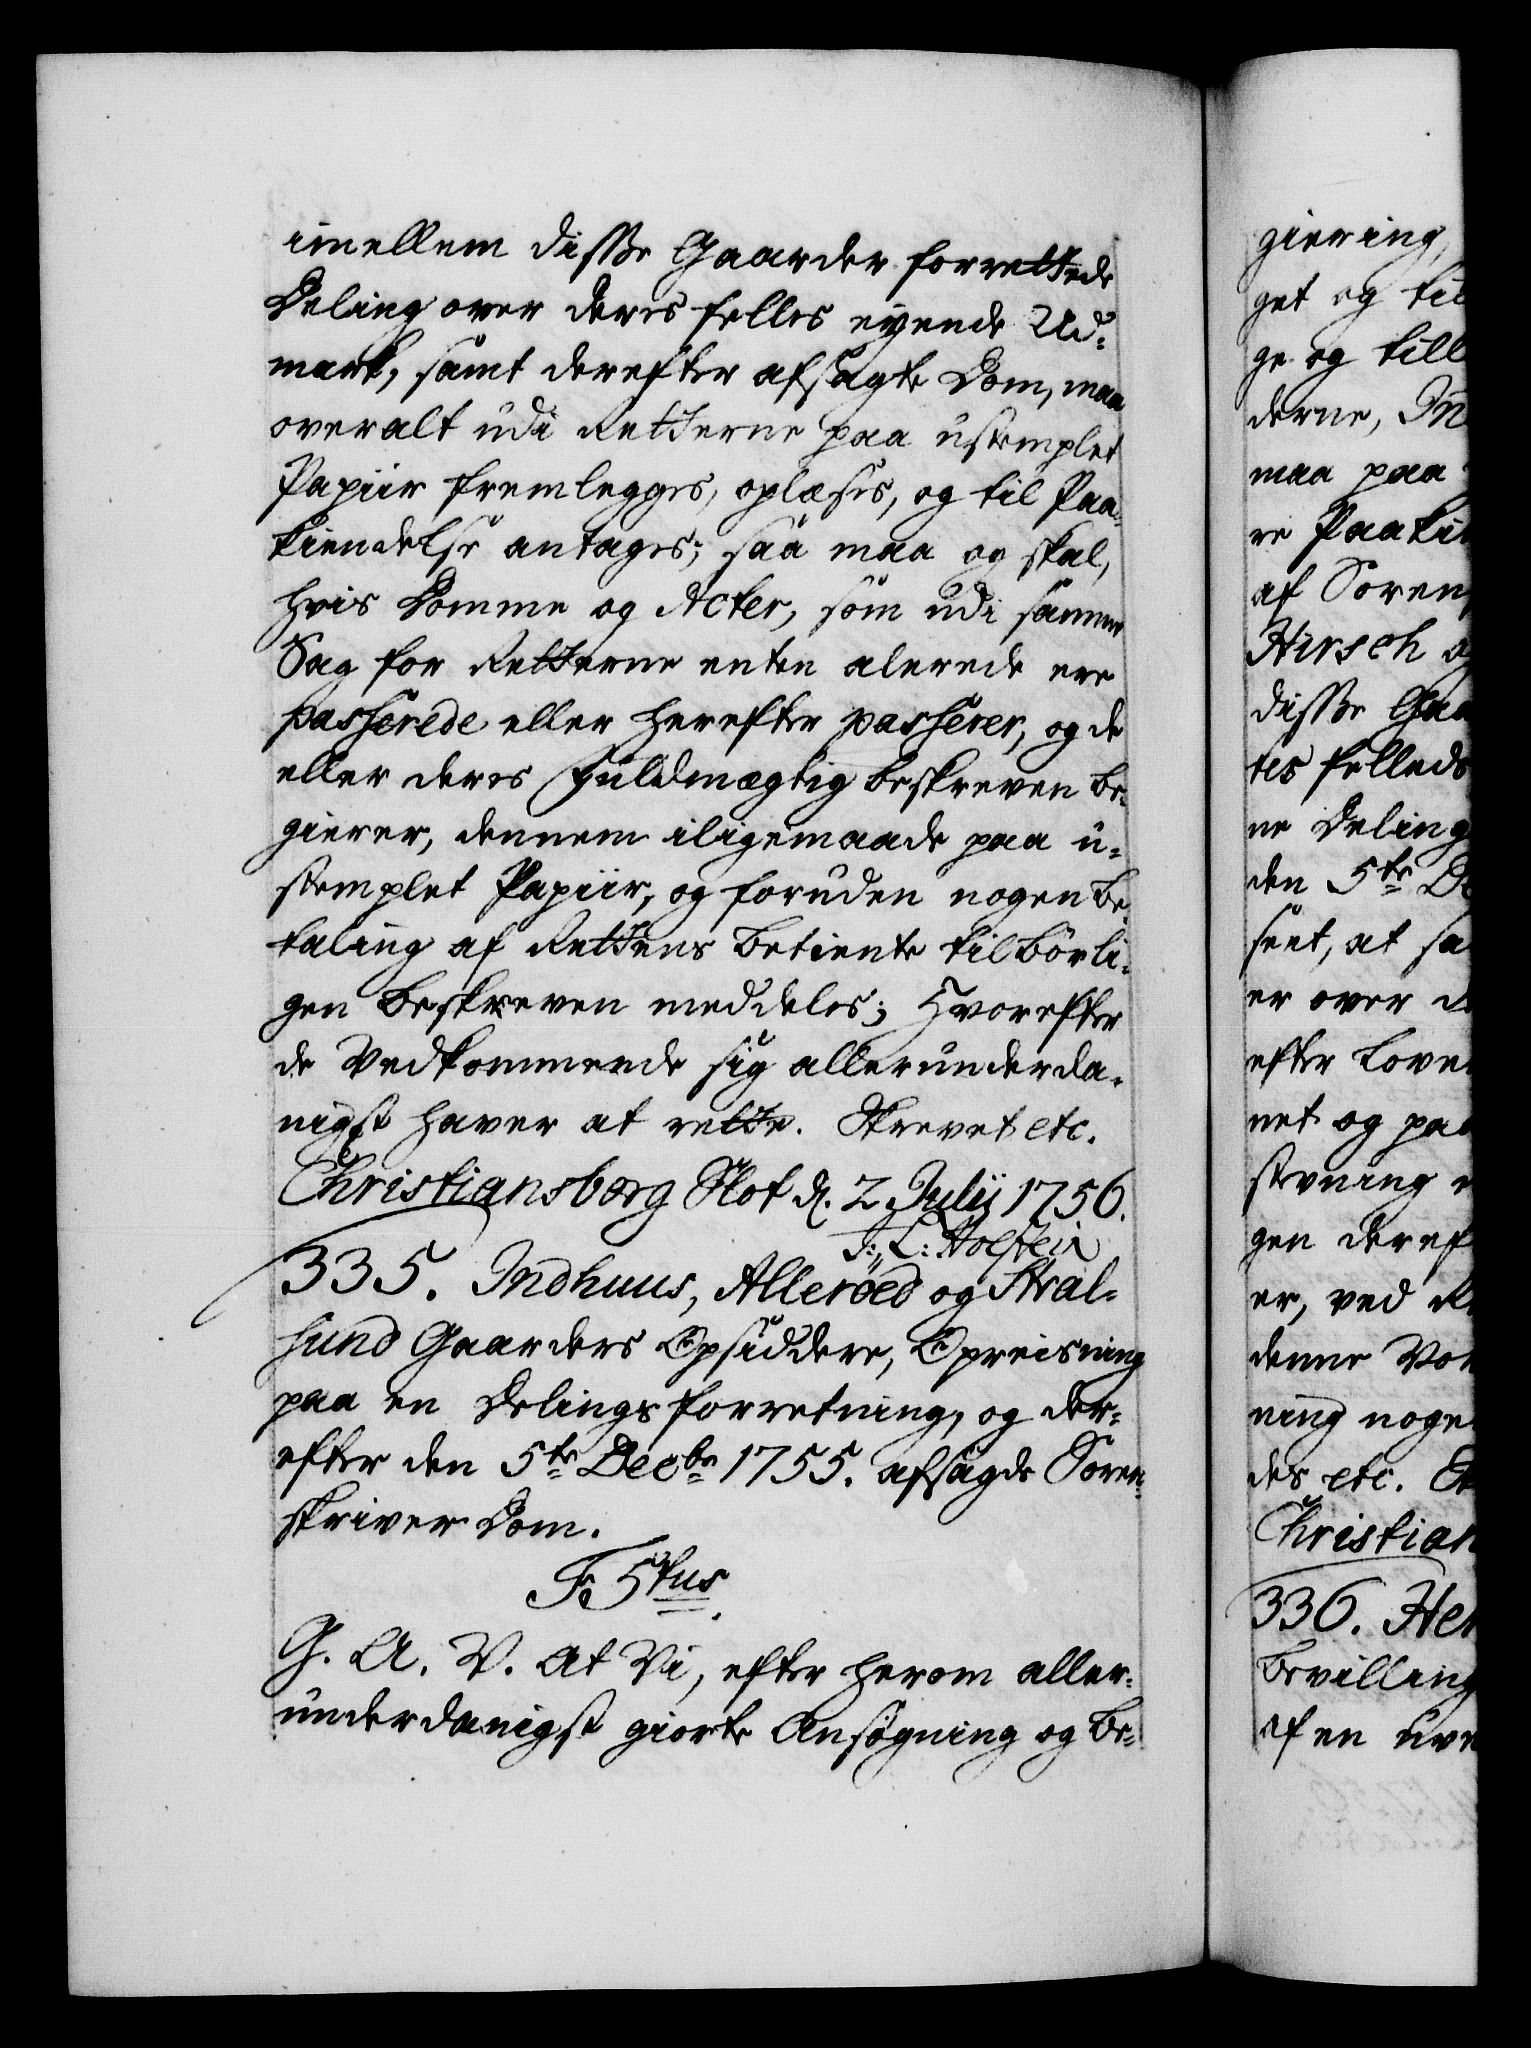 imellem disse Gaarder forrettede
Deling over deres felles eyende Ud-
mark, samt derefter afsagte Dom, maa
overalt udi Retterne paa ustemplet
Papiir fremlegges, oplæses, og til Paa-
kiendelse antages; saa maa og skal,
hvis Domme og Acter, som udi samme
Sag for Retterne enten alerede ere
passerede eller herefter passerer, og de
eller deres Fuldmægtig beskreven be-
gierer, dennem iligemaade paa u-
stemplet Papiir, og foruden nogen be-
taling af Rettens betiente tilbörli-
gen beskreven meddeles; Hvorefter
de Vedkommende sig allerunderda-
nigst haver at rette. Skrevet etc.
Christiansborg Slot d. 2 Julij 1756.
J: L: Holstein
335. Indhuus, Alleröed og Stral-
sund Gaarders Opsiddere, Opreisning
paa en Delings forretning, og der-
efter den 5te Decbr 1755. afsagde Soren-
skriver Dom.
F. 5tus.
G. A. V. At Vi, efter herom aller-
underdanigst giorte Ansøgning og be-
giering,
get og til
ge og till
derne, In
maa paa
re Paaki
af Soren
Hirsch o
disse Gaa
tes felleds
ne Deling
den 5te D
seet, at sa
er over d
efter Love
net og paa
stevning
gen deref
er, ved R
denne Vo
ning noge
des etc.
Christian
336. Hen
bevilling
af en uve